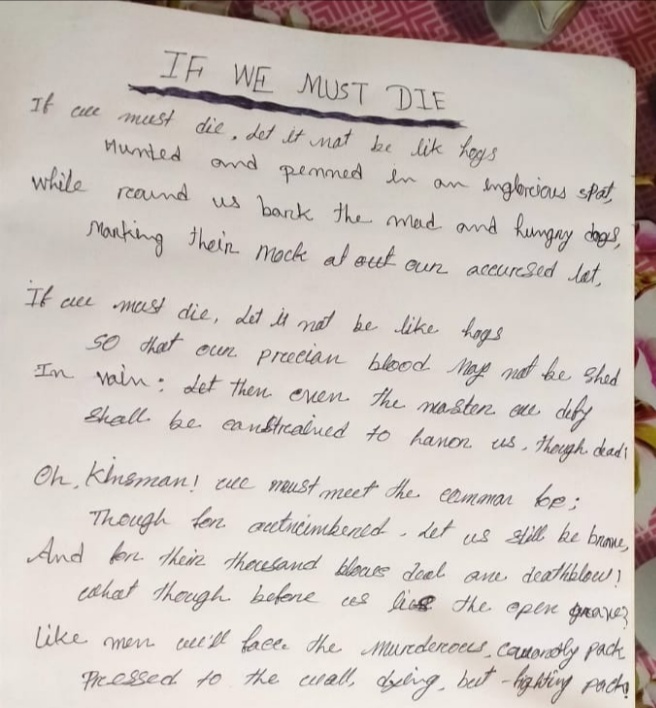 IF WE MUST DIE
If we must die, Let it not be lik hogs
Hunted and penned in an inglorious spot,
While round us bark the mad and hungry dogs,
Marking their mock at out our accuresed lot,
If we must die, Let it not be like hogs
so that our precian blood may not be shed
In vain: Let then even the master we defy
Shall be constrained to honor us, though dead;
Oh, Kinsman! we must meet the common foe;
Though for outnimbered, Let us still be brave,
And for their thousand blows deal one deathblow!
What though before us lies the open grave?
Like men we'll face the murderous, cowardly pack
Pressed to the wall, dying, but fighting pack!